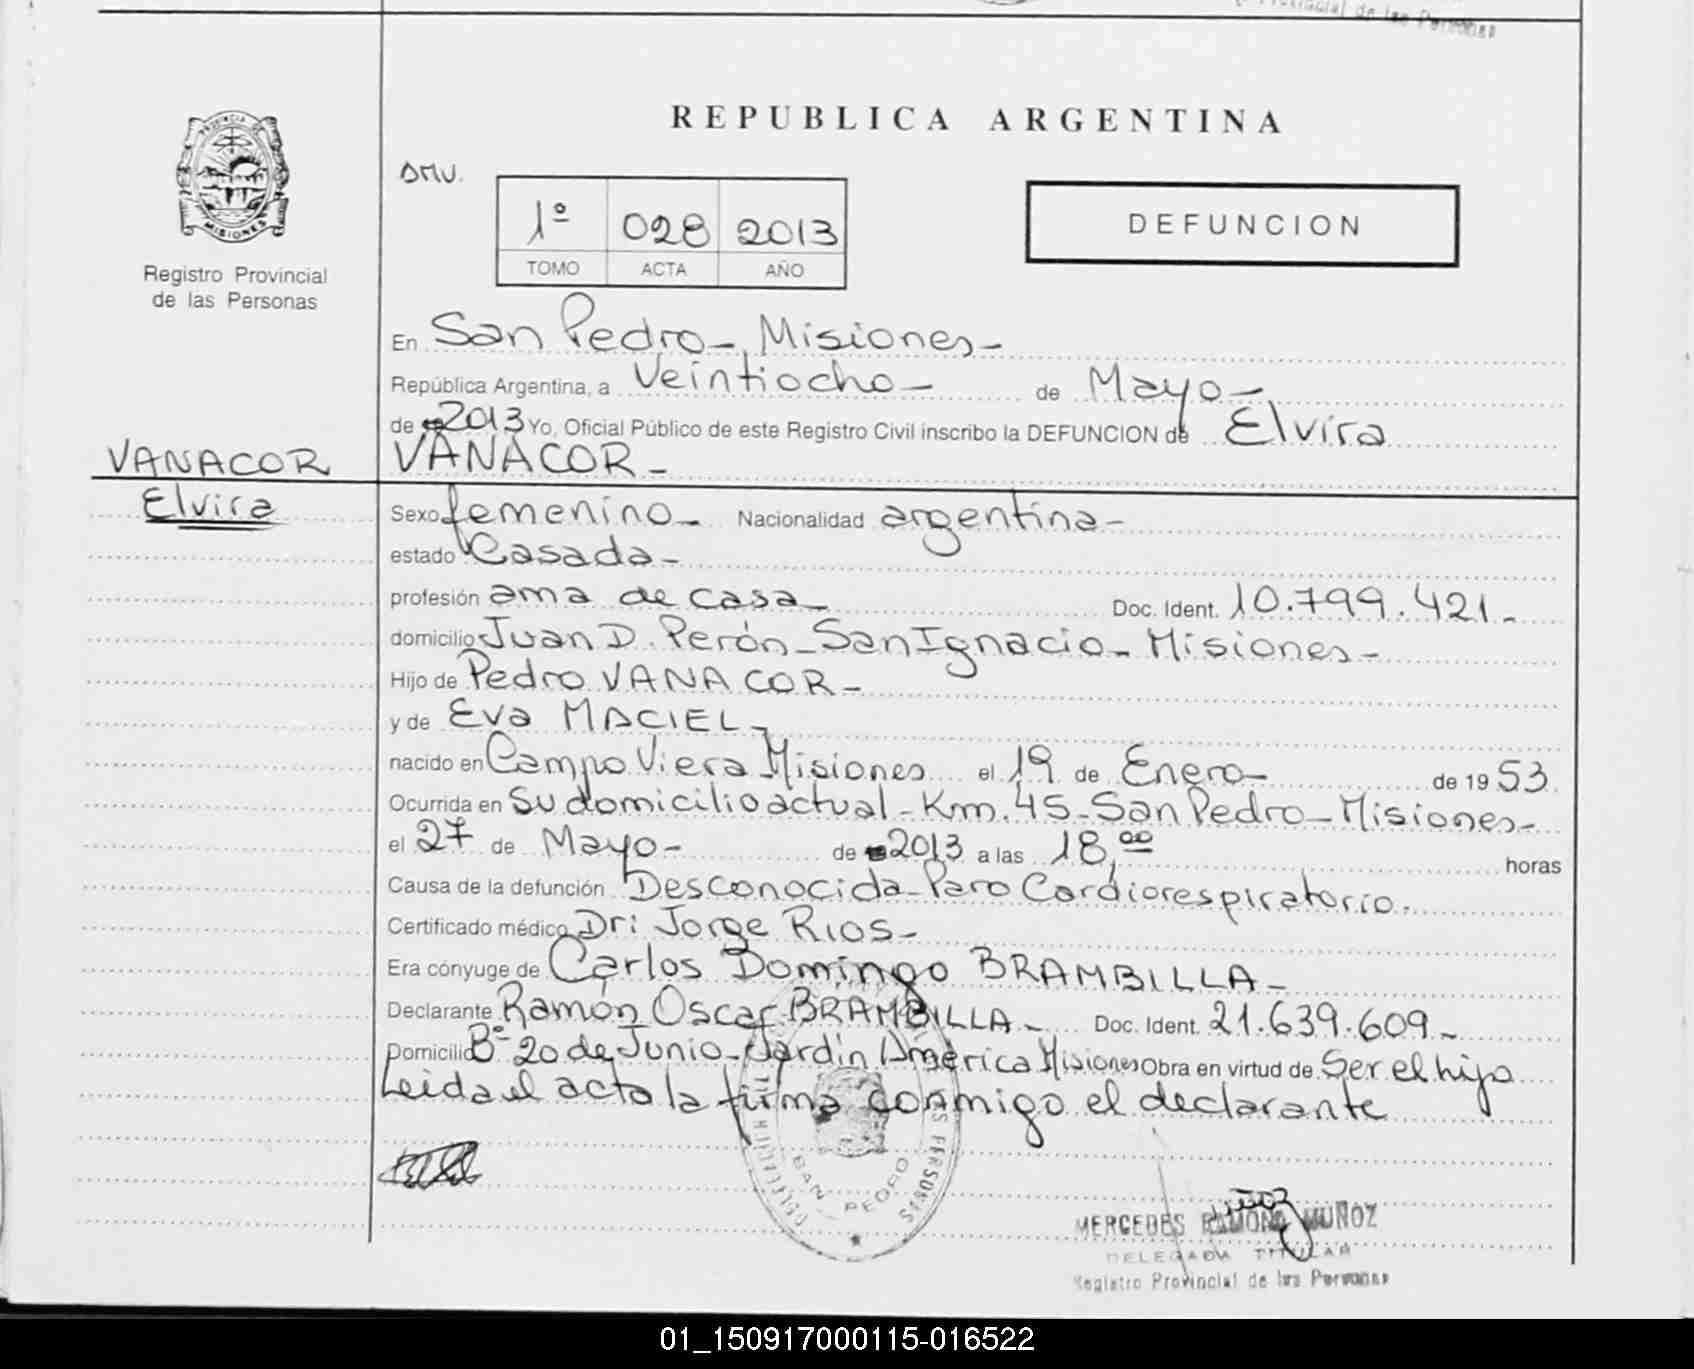 Provincial de las Personas
REPUBLICA ARGENTINA
PROVINCIA DE
MISIONES
Registro Provincial
de las Personas
DMV.
1º 028 2013
TOMO ACTA AÑO
DEFUNCION
En San Pedro - Misiones -
República Argentina, a Veintiocho - de Mayo -
de 2013 Yo, Oficial Público de este Registro Civil inscribo la DEFUNCION de Elvira
VANACOR VANACOR -
Elvira
Sexo femenino - Nacionalidad argentina -
estado Casada -
profesión ama de casa - Doc. Ident. 10.799.421 -
domicilio Juan D. Perón - San Ignacio - Misiones -
Hijo de Pedro VANACOR -
y de Eva MACIEL -
nacido en Campo Viera Misiones el 19 de Enero - de 1953
Ocurrida en Su domicilio actual - Km. 45 - San Pedro - Misiones -
el 27 de Mayo - de 2013 a las 18,00 horas
Causa de la defunción Desconocida - Paro Cardiorespiratorio.
Certificado médico Dr: Jorge RIOS -
Era cónyuge de Carlos Domingo BRAMBILLA -
Declarante Ramón Oscar BRAMBILLA - Doc. Ident. 21.639.609 -
Domicilio Bº 20 de Junio - Jardín América Misiones Obra en virtud de Ser el hijo
Leida el acta la firma conmigo el declarante
SAN PEDRO
MERCEDES RAMONA MUÑOZ
DELEGADA TITULAR
Registro Provincial de las Personas
01_150917000115-016522